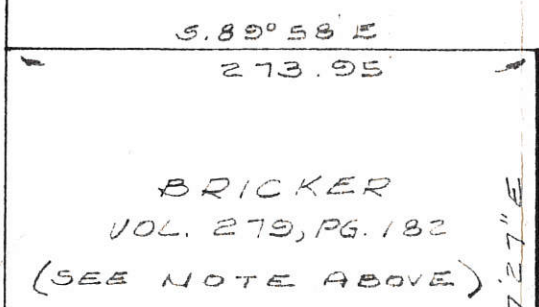 S.89°58'E
273.95
BRICKER
VOL. 279, PG. 182
(SEE NOTE ABOVE)
7'27"E